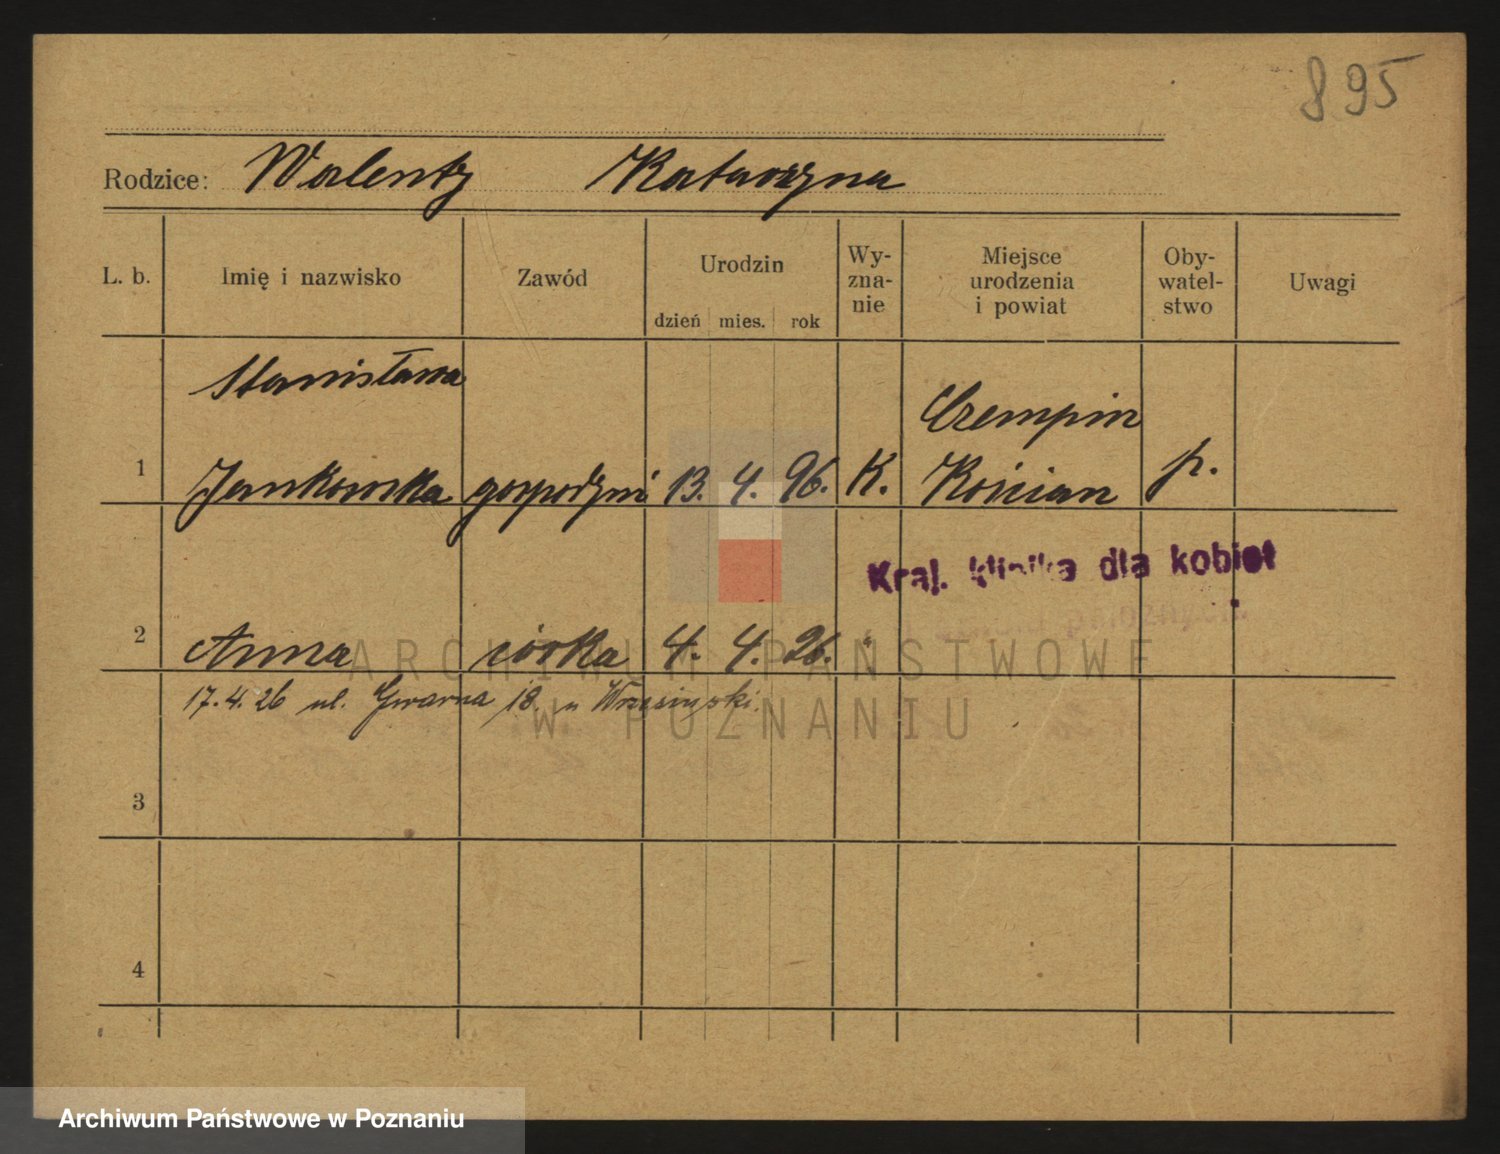 895
Rodzice: Walenty Katarzyna
L. b. Imię i nazwisko Zawód Urodzin dzień mies. rok Wy-zna-nie Miejsce urodzenia i powiat Oby-watel-stwo Uwagi
Stanisława
Czempin
1 Jankowska gospodyni 13. 4. 96. K. Kościan p.
Kraj. klinika dla kobiet
2 Anna córka 4. 4. 26.
17.4.26 ul. Gwarna 18. u Wrzesiński.
3
4
ARCHIWUM PAŃSTWOWE
W POZNANIU
Archiwum Państwowe w Poznaniu